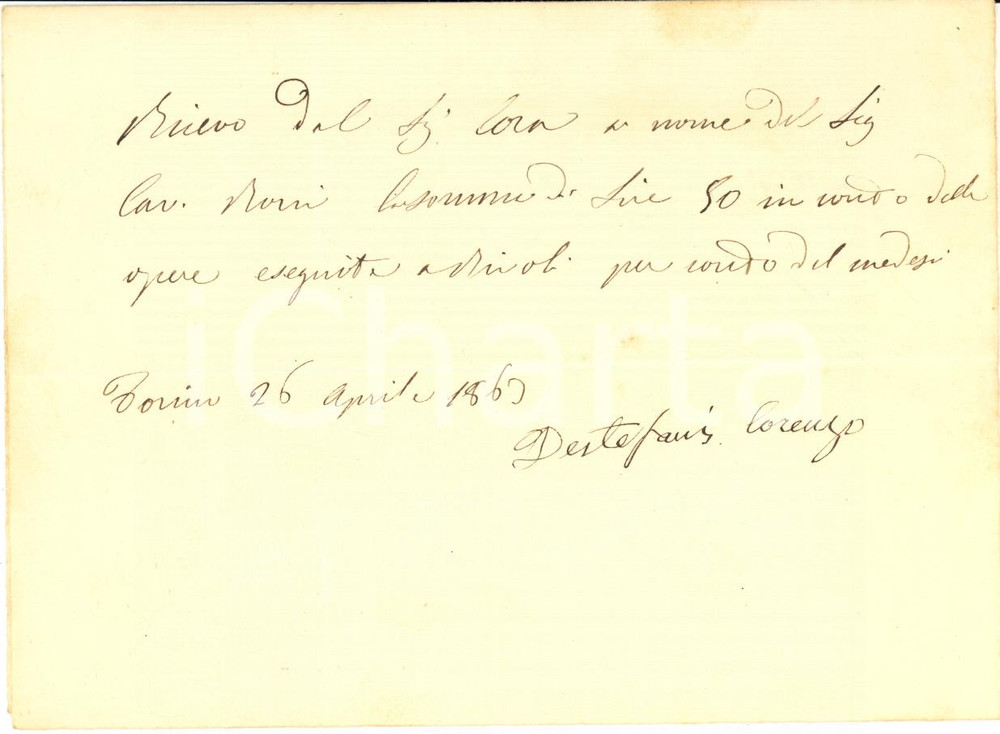 Ricevo dal Sig. Cora a nome del Sig
Cav. Rossi la somma di Lire 50 in conto delle
opere eseguite a Rivoli per conto del medesi
iCharta
Torino 26 Aprile 1863
Destefanis Lorenzo